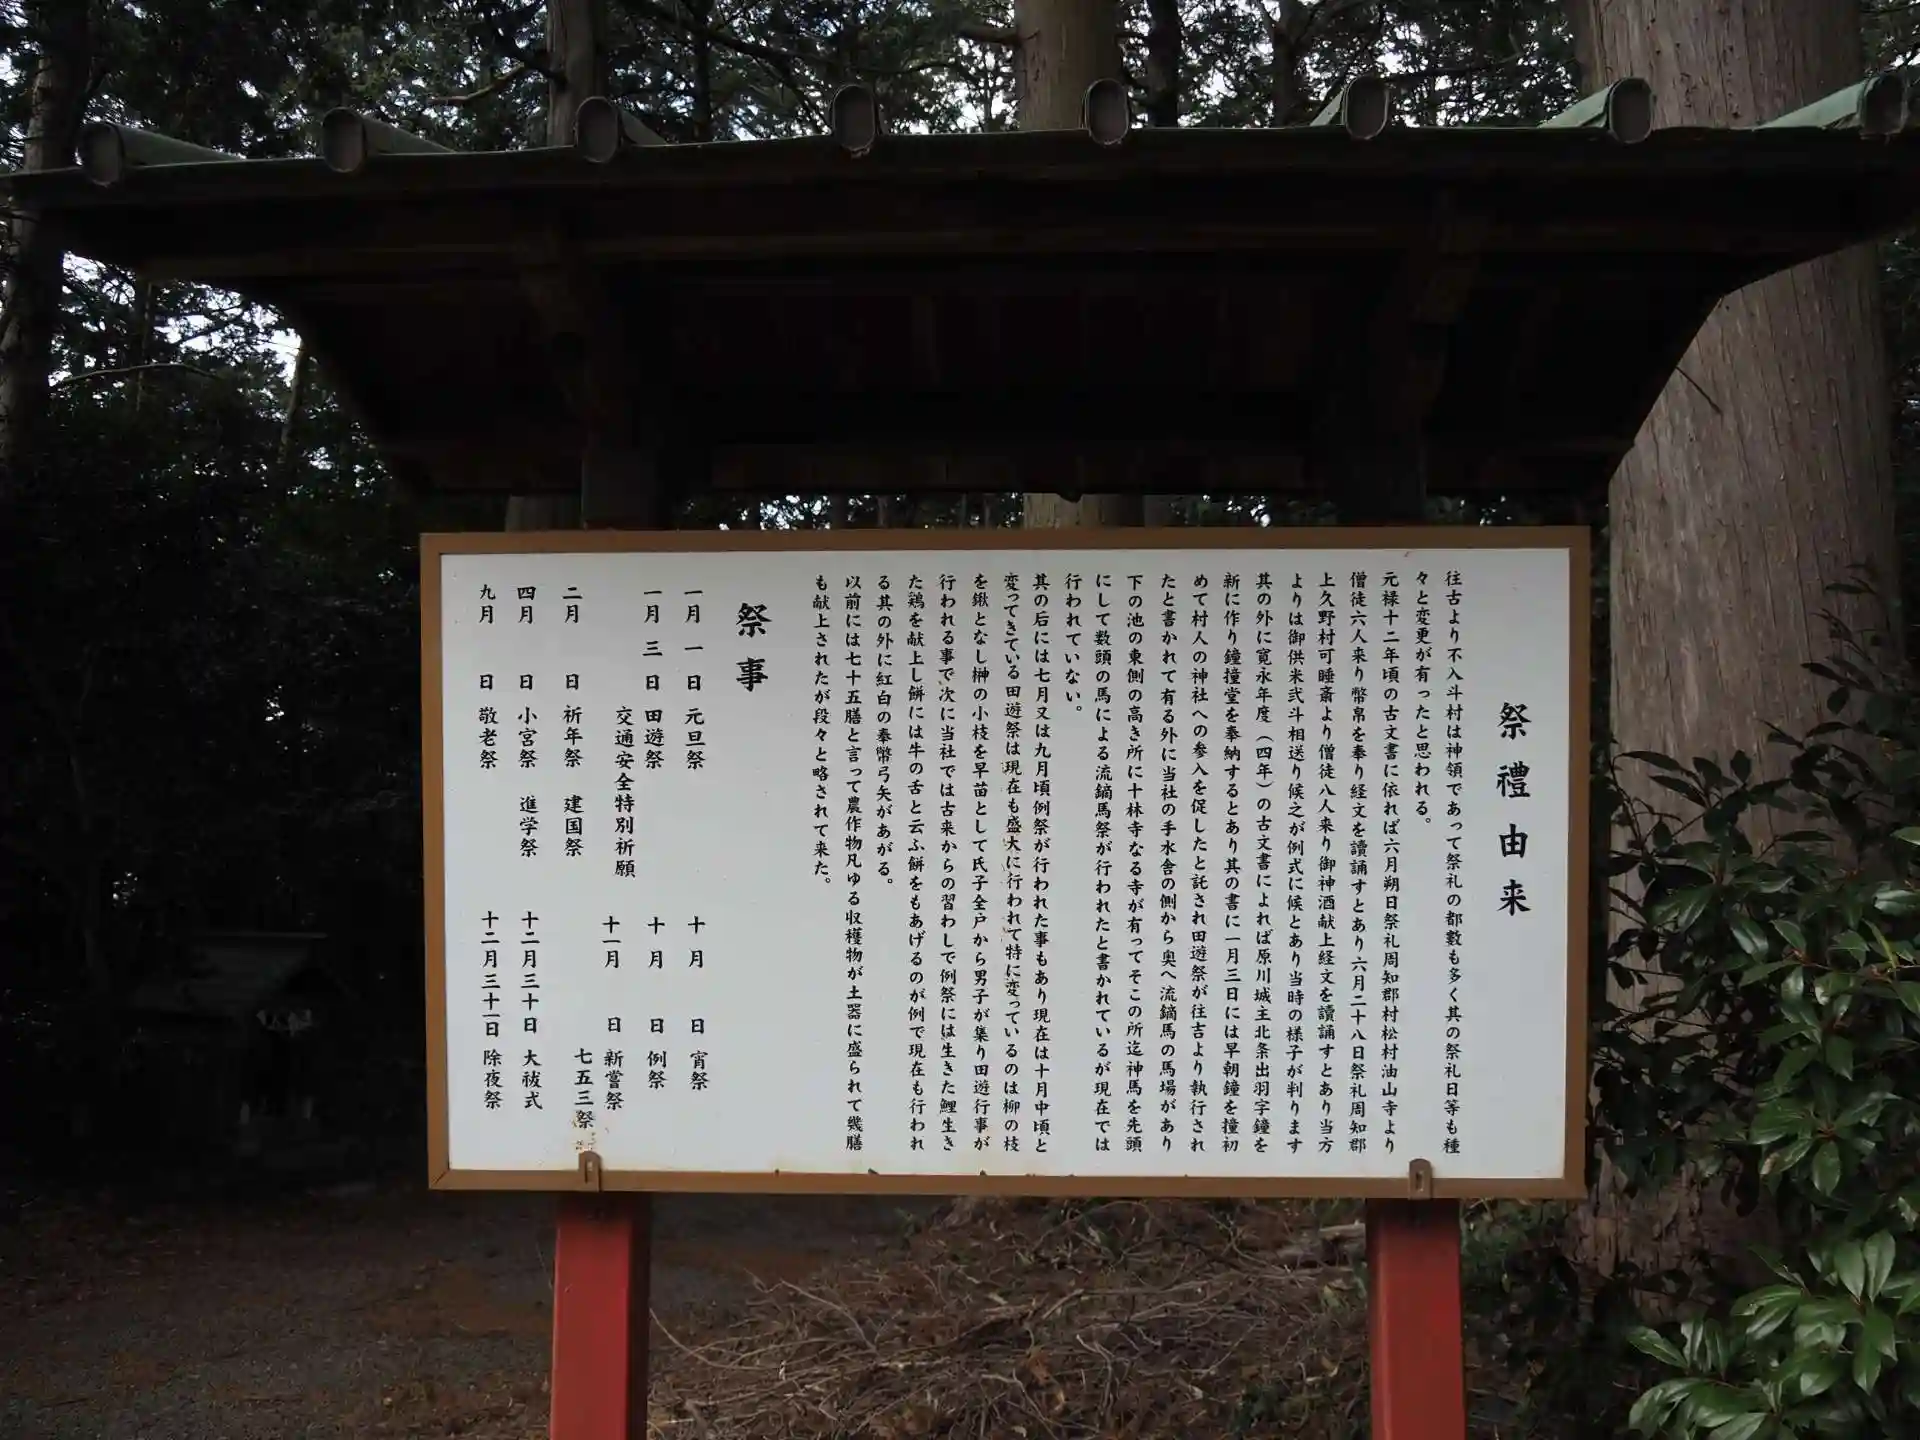 祭禮由来
往古より不入斗村は神領であって祭礼の都數も多く其の祭礼日等も種
々と変更が有ったと思われる。
元禄十二年頃の古文書に依れば六月朔日祭礼周知郡村松村油山寺より
僧徒六人来り幣帛を奉り経文を讀誦すとあり六月二十八日祭礼周知郡
上久野村可睡斎より僧徒八人来り御神酒献上経文を讀誦すとあり当方
よりは御供米弐斗相送り候之が例式に候とあり当時の様子が判ります
其の外に寛永年度（四年）の古文書によれば原川城主北条出羽守鐘を
新に作り鐘撞堂を奉納するとあり其の書に一月三日には早朝鐘を撞初
めて村人の神社への参入を促したと託され田遊祭が往吉より執行され
たと書かれて有る外に当社の手水舎の側から奥へ流鏑馬の馬場があり
下の池の東側の高き所に十林寺なる寺が有ってそこの所迄神馬を先頭
にして数頭の馬による流鏑馬祭が行われたと書かれているが現在では
行われていない。
其の后には七月又は九月頃例祭が行われた事もあり現在は十月中頃と
変ってきている田遊祭は現在も盛大に行われて特に変っているのは柳の枝
を鍬となし榊の小枝を早苗として氏子全戸から男子が集り田遊行事が
行われる事で次に当社では古来からの習わしで例祭には生きた鯉生き
た鶏を献上し餅には牛の舌と云ふ餅をもあげるのが例で現在も行われ
る其の外に紅白の奉幣弓矢があがる。
以前には七十五膳と言って農作物凡ゆる収穫物が土器に盛られて幾膳
も献上されたが段々と略されて来た。
祭事
一月一日 元旦祭
一月三日 田遊祭
交通安全特別祈願
二月 日 祈年祭 建国祭
四月 日 小宮祭 進学祭
九月 日 敬老祭
十月 日 宵祭
十月 日 例祭
十一月 日 新嘗祭
七五三祭
十二月三十日 大祓式
十二月三十一日 除夜祭